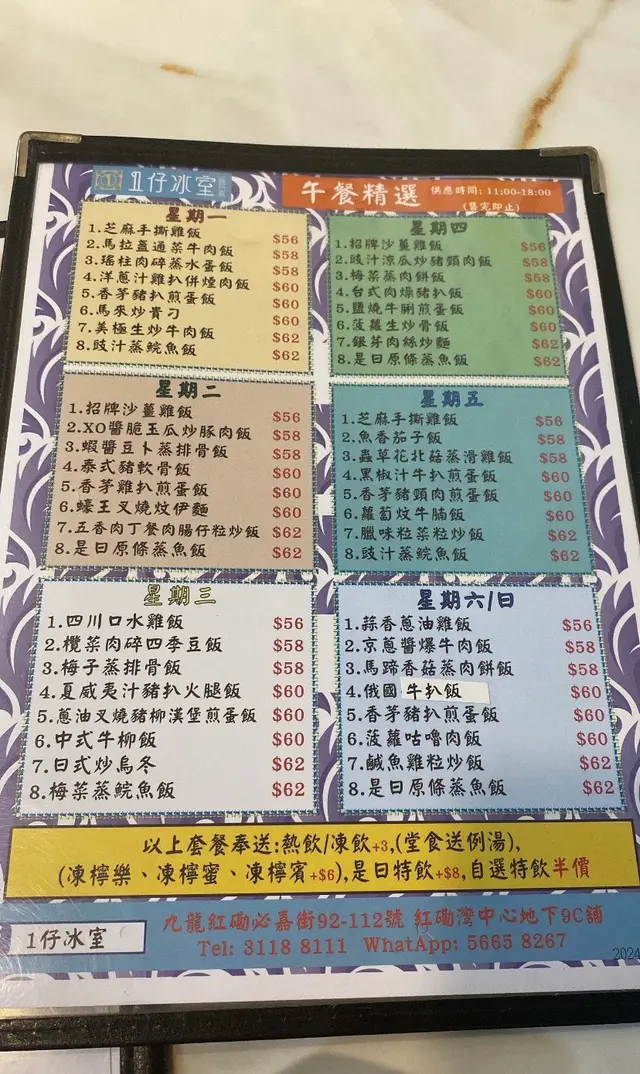 1仔冰室
午餐精選
供應時間: 11:00-18:00
(售完即止)
星期一
1.芝麻手撕雞飯 $56
2.馬拉盞通菜牛肉飯 $58
3.瑤柱肉碎蒸水蛋飯 $58
4.洋蔥汁雞扒併煙肉飯 $60
5.香茅豬扒煎蛋飯 $60
6.馬來炒貴刁 $60
7.美極生炒牛肉飯 $62
8.豉汁蒸鯇魚飯 $62
星期二
1.招牌沙薑雞飯 $56
2.XO醬脆玉瓜炒豚肉飯 $58
3.蝦醬豆卜蒸排骨飯 $58
4.泰式豬軟骨飯 $60
5.香茅雞扒煎蛋飯 $60
6.蠔王叉燒炆伊麵 $60
7.五香肉丁餐肉腸仔粒炒飯 $62
8.是日原條蒸魚飯 $62
星期三
1.四川口水雞飯 $56
2.欖菜肉碎四季豆飯 $58
3.梅子蒸排骨飯 $58
4.夏威夷汁豬扒火腿飯 $60
5.蔥油叉燒豬柳漢堡煎蛋飯 $60
6.中式牛柳飯 $60
7.日式炒烏冬 $62
8.梅菜蒸鯇魚飯 $62
星期四
1.招牌沙薑雞飯 $56
2.豉汁涼瓜炒豬頸肉飯 $58
3.梅菜蒸肉餅飯 $58
4.台式肉燥豬扒飯 $60
5.鹽燒牛脷煎蛋飯 $60
6.菠蘿生炒骨飯 $60
7.銀芽肉絲炒麵 $62
8.是日原條蒸魚飯 $62
星期五
1.芝麻手撕雞飯 $56
2.魚香茄子飯 $58
3.蟲草花北菇蒸滑雞飯 $58
4.黑椒汁牛扒煎蛋飯 $60
5.香茅豬頸肉煎蛋飯 $60
6.蘿蔔炆牛腩飯 $60
7.臘味粒菜粒炒飯 $62
8.豉汁蒸鯇魚飯 $62
星期六/日
1.蒜香蔥油雞飯 $56
2.京蔥醬爆牛肉飯 $58
3.馬蹄香菇蒸肉餅飯 $58
4.俄國牛扒飯 $60
5.香茅豬扒煎蛋飯 $60
6.菠蘿咕嚕肉飯 $60
7.鹹魚雞粒炒飯 $62
8.是日原條蒸魚飯 $62
以上套餐奉送:熱飲/凍飲+3,(堂食送例湯),
(凍檸樂、凍檸蜜、凍檸賓+$6),是日特飲+$8,自選特飲半價
1仔冰室
九龍紅磡必嘉街92-112號 紅磡灣中心地下9C舖
Tel: 3118 8111 WhatApp: 5665 8267
2024